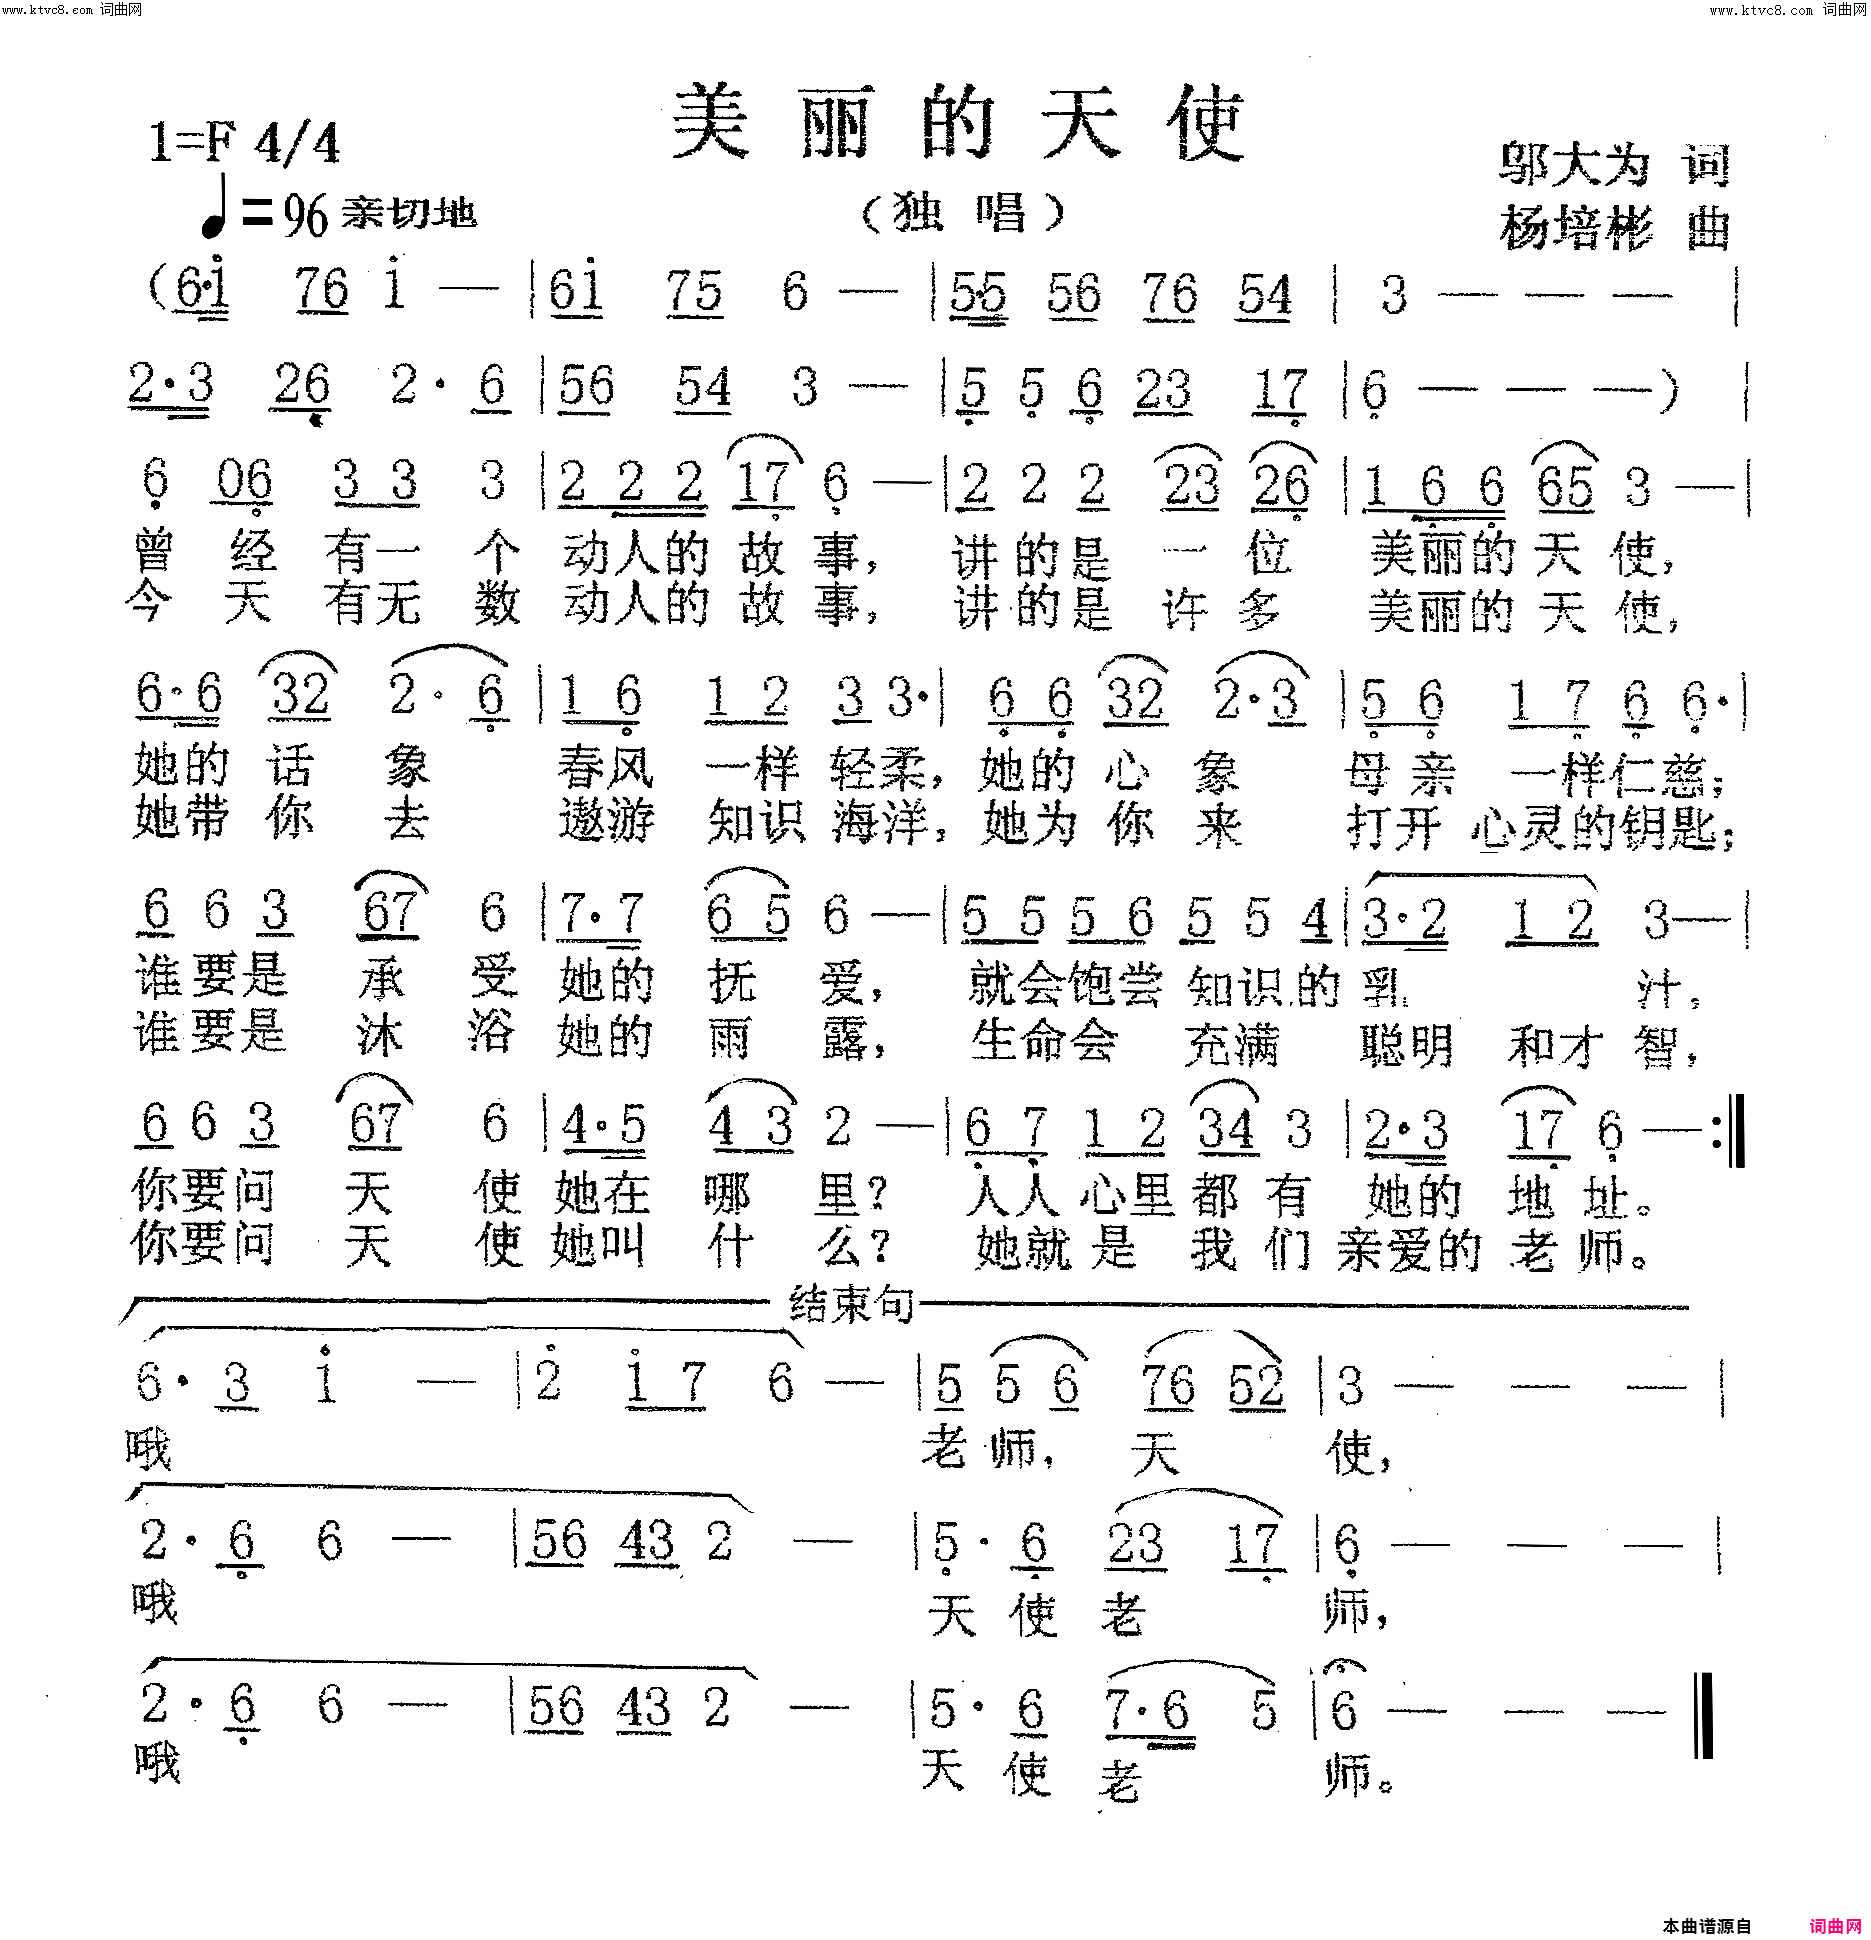 www.ktvc8.com 词曲网
www.ktvc8.com 词曲网
美丽的天使
1=F 4/4
♩=96 亲切地
（独 唱）
邬大为 词
杨培彬 曲
(6·i 76 i — | 6i 75 6 — | 5·5 56 76 54 | 3 — — — |
2·3 26 2· 6 | 56 54 3 — | 5 5 6 23 17 | 6 — — —) |
6 06 3 3 3 | 2 2 2 17 6 — | 2 2 2 23 26 | 1 6 6 65 3 — |
曾 经 有一 个 动人的 故 事， 讲的是 一 位 美丽的 天 使，
今 天 有无 数 动人的 故 事， 讲的是 许 多 美丽的 天 使，
6·6 32 2· 6 | 1 6 1 2 3 3· | 6 6 32 2·3 | 5 6 1 7 6 6· |
她的 话 象 春风 一样 轻柔， 她的 心 象 母亲 一样仁慈；
她带 你 去 遨游 知识 海洋， 她为 你 来 打开 心灵的钥匙；
6 6 3 67 6 | 7·7 6 5 6 — | 5 5 5 6 5 5 4 | 3·2 1 2 3 — |
谁要是 承 受 她的 抚 爱， 就会饱尝 知识的 乳 汁，
谁要是 沐 浴 她的 雨 露， 生命会 充满 聪明 和才 智，
6 6 3 67 6 | 4·5 4 3 2 — | 6 7 1 2 34 3 | 2·3 17 6 — :|
你要问 天 使 她在 哪 里？ 人人 心里 都 有 她的 地 址。
你要问 天 使 她叫 什 么？ 她就 是 我 们 亲爱的 老 师。
结束句
6· 3 i — | 2 i 7 6 — | 5 5 6 76 52 | 3 — — — |
哦 老 师， 天 使，
2· 6 6 — | 56 43 2 — | 5· 6 23 17 | 6 — — — |
哦 天 使 老 师，
2· 6 6 — | 56 43 2 — | 5· 6 7·6 5 | 6 — — — ‖
哦 天 使 老 师。
本曲谱源自 词曲网